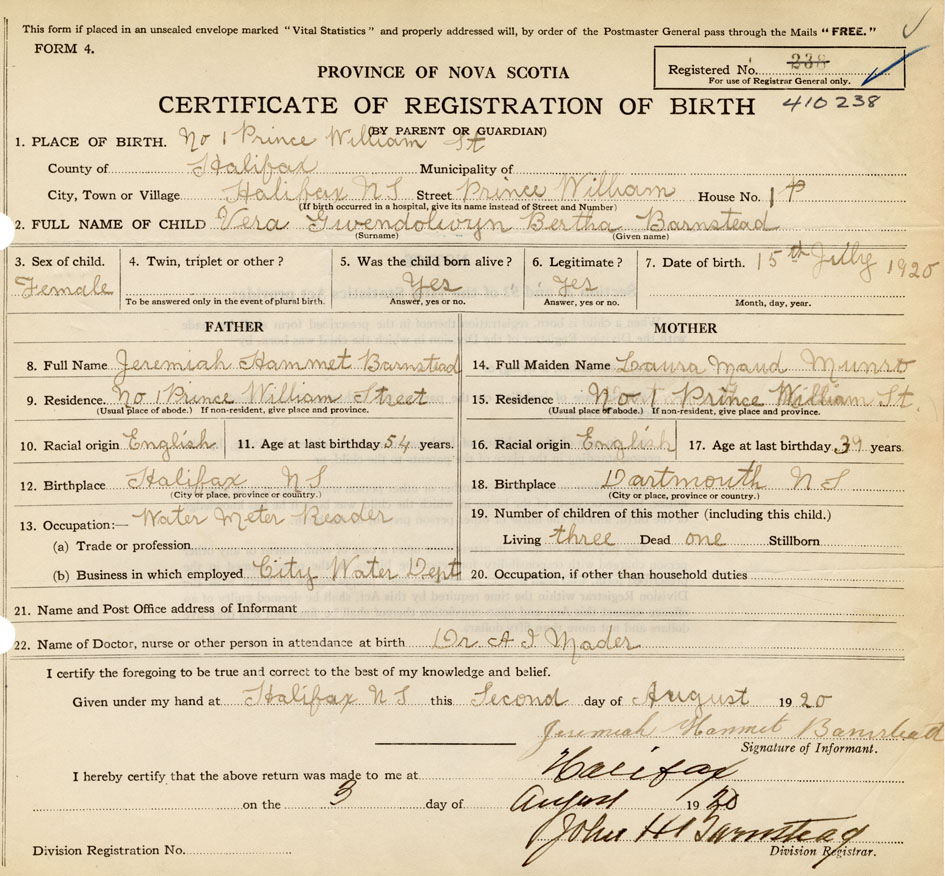 This form if placed in an unsealed envelope marked "Vital Statistics" and properly addressed will, by order of the Postmaster General pass through the Mails "FREE."
FORM 4.
PROVINCE OF NOVA SCOTIA
Registered No. 238
For use of Registrar General only.
CERTIFICATE OF REGISTRATION OF BIRTH
410238
(BY PARENT OR GUARDIAN)
1. PLACE OF BIRTH. No 1 Prince William St
County of Halifax Municipality of
City, Town or Village Halifax N S Street Prince William House No. 1
(If birth occurred in a hospital, give its name instead of Street and Number)
2. FULL NAME OF CHILD Vera Gwendolwyn Bertha Barnstead
(Surname) (Given name)
3. Sex of child. 4. Twin, triplet or other ? 5. Was the child born alive ? 6. Legitimate ? 7. Date of birth. 15th July 1920
Female Yes Yes
To be answered only in the event of plural birth. Answer, yes or no. Answer, yes or no. Month, day, year.
FATHER
8. Full Name Jeremiah Hammet Barnstead
9. Residence. No 1 Prince William Street
(Usual place of abode.) If non-resident, give place and province.
10. Racial origin English 11. Age at last birthday 54 years.
12. Birthplace Halifax N S
(City or place, province or country.)
13. Occupation:— Water Meter Reader
(a) Trade or profession
(b) Business in which employed City Water Dept
MOTHER
14. Full Maiden Name Laura Maud Munro
15. Residence No 1 Prince William St.
(Usual place of abode.) If non-resident, give place and province.
16. Racial origin English 17. Age at last birthday 39 years.
18. Birthplace Dartmouth N S
(City or place, province or country.)
19. Number of children of this mother (including this child.)
Living three Dead one Stillborn
20. Occupation, if other than household duties
21. Name and Post Office address of Informant
22. Name of Doctor, nurse or other person in attendance at birth Dr A I Mader
I certify the foregoing to be true and correct to the best of my knowledge and belief.
Given under my hand at Halifax N S this Second day of August 1920
Jeremiah Hammet Barnstead
Signature of Informant.
I hereby certify that the above return was made to me at Halifax
on the 3 day of August 1920
John H Barnstead
Division Registration No. Division Registrar.